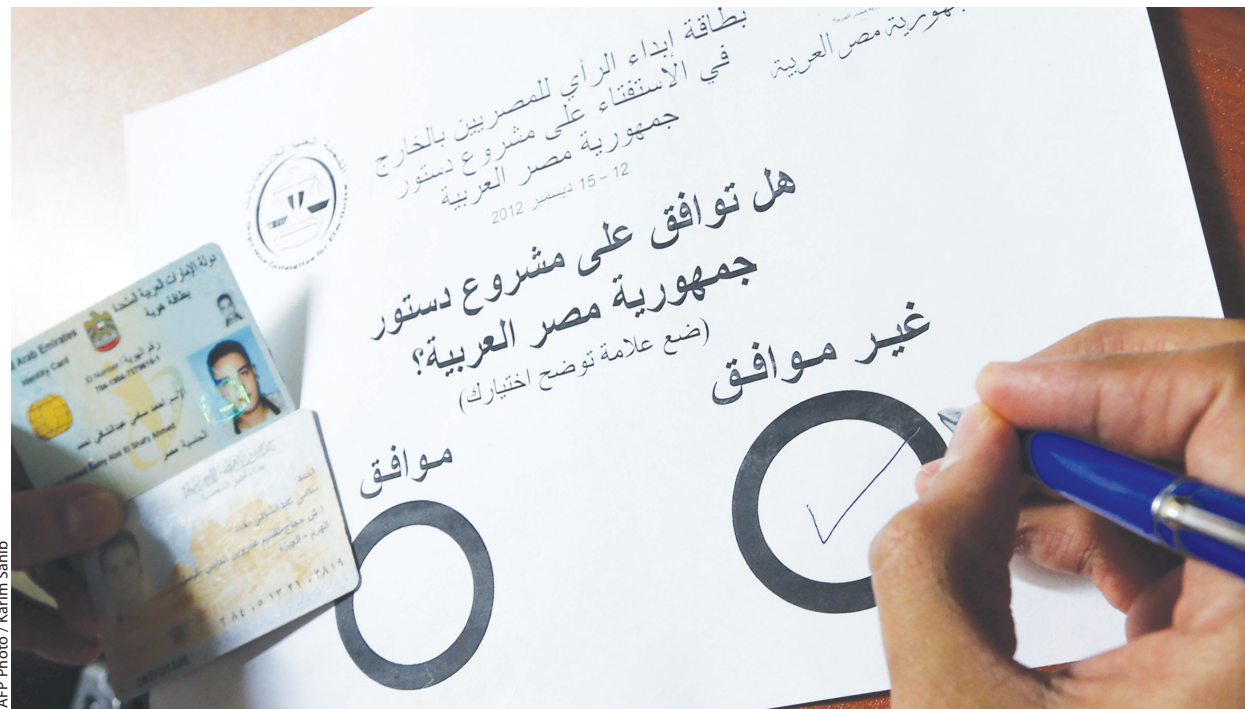 جمهورية مصر العربية
بطاقة إبداء الرأي للمصريين بالخارج
في الاستفتاء على مشروع دستور
جمهورية مصر العربية
12 – 15 ديسمبر 2012
هل توافق على مشروع دستور
جمهورية مصر العربية؟
(ضع علامة توضح اختيارك)
غير موافق
موافق
Supreme Committee for Elections
دولة الإمارات العربية المتحدة
بطاقة هوية
Arab Emirates
Identity Card
رقم الهوية
ID Number
الجنسية: مصر
AFP Photo / Karim Sahib